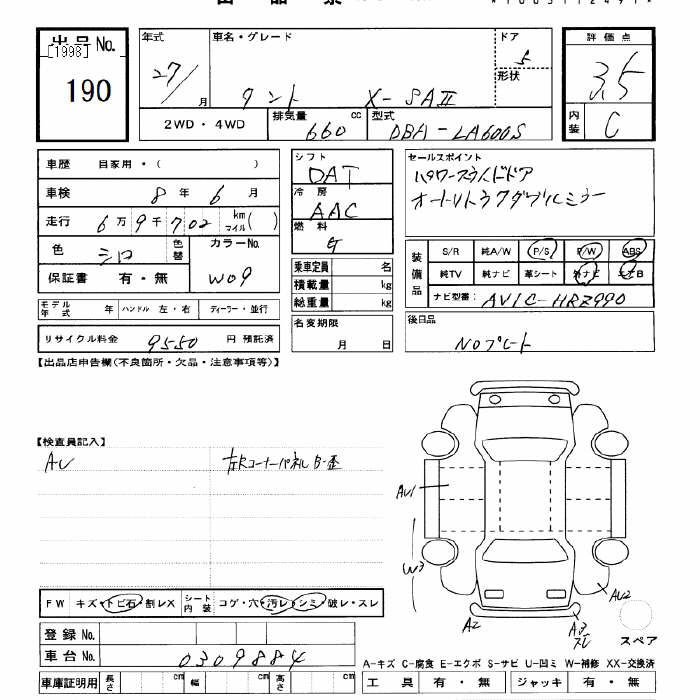 出品No.
[1998]
190
年式
27/
月
車名・グレード
タント X-SAⅡ
ドア
5
形状
評価点
3.5
内装
C
2WD・4WD
排気量
660 cc
型式
DBA-LA600S
車歴 自家用・( )
車検 8年 6月
走行 6万9千702 km マイル( )
色 シロ
色替
カラーNo.
W09
保証書 有・無
モデル年式 年 ハンドル 左・右 ディーラー・並行
リサイクル料金 9550 円 預託済
シフト
DAT
冷房
AAC
燃料
G
乗車定員 名
積載量 kg
総重量 kg
名変期限
月 日
セールスポイント
パワースライドドア
オートリトラクタブルミラー
装備品
S/R 純A/W P/S P/W ABS
純TV 純ナビ 革シート 外ナビ エアB
ナビ型番: AVIC-HRZ990
後日品
NOプレート
【出品店申告欄(不良箇所・欠品・注意事項等)】
【検査員記入】
AU
左Rコーナーパネル B・歪
AU1
W3
A2
AU2
スレ
スペア
FW キズ・トビ石・割レX
シート内装 コゲ・穴・汚レ・シミ・破レ・スレ
登録No.
車台No. 0309884
車庫証明用 長さ cm 幅 cm 高さ cm
A-キズ C-腐食 E-エクボ S-サビ U-凹ミ W-補修 XX-交換済
工具 有・無 ジャッキ 有・無